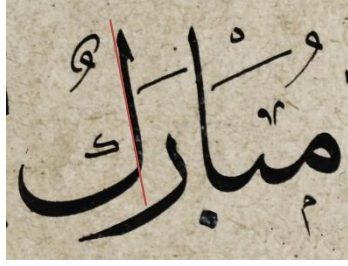 مُبَارَكٌ